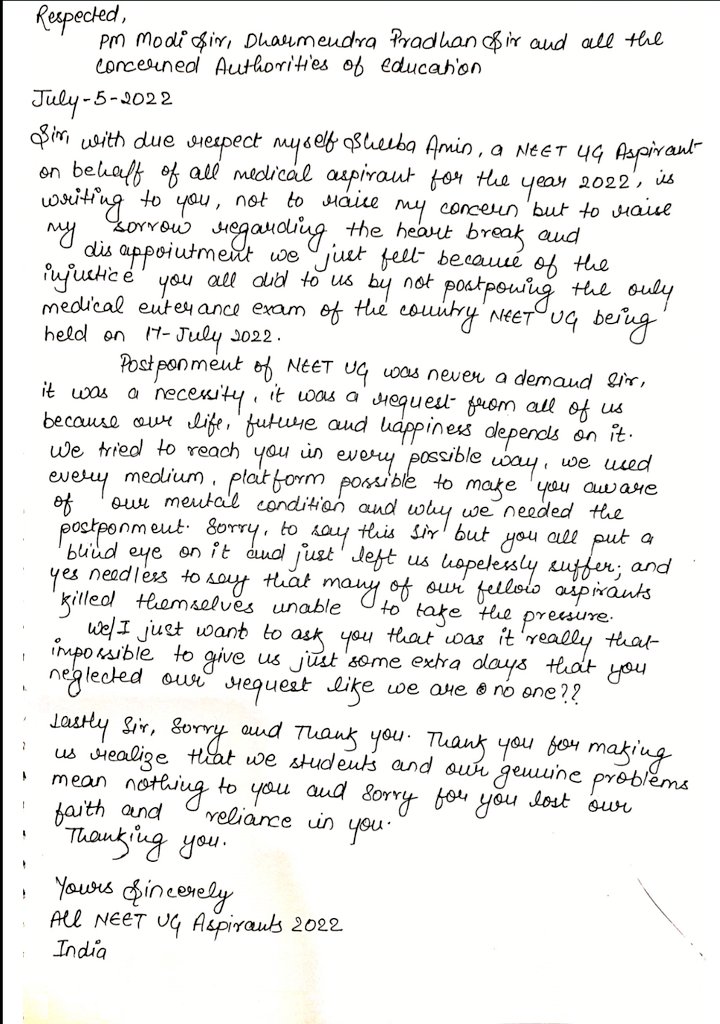 Respected,
PM Modi Sir, Dharmendra Pradhan Sir and all the
concerned Authorities of Education
July-5-2022
Sir, with due respect myself Sheeba Amin, a NEET UG Aspirant
on behalf of all medical aspirant for the year 2022, is
writing to you, not to raise my concern but to raise
my sorrow regarding the heart break and
disappointment we just felt because of the
injustice you all did to us by not postponing the only
medical enterance exam of the country NEET UG being
held on 17-July 2022.
Postponment of NEET UG was never a demand Sir,
it was a necessity, it was a request from all of us
because our life, future and happiness depends on it.
We tried to reach you in every possible way, we used
every medium, platform possible to make you aware
of our mental condition and why we needed the
postponment. Sorry, to say this Sir but you all put a
blind eye on it and just left us hopelessly suffer; and
yes needless to say that many of our fellow aspirants
killed themselves unable to take the pressure.
We/I just want to ask you that was it really that
impossible to give us just some extra days that you
neglected our request like we are no one??
Lastly Sir, Sorry and Thank you. Thank you for making
us realize that we students and our genuine problems
mean nothing to you and Sorry for you lost our
faith and reliance in you.
Thanking you.
Yours Sincerely
All NEET UG Aspirants 2022
India